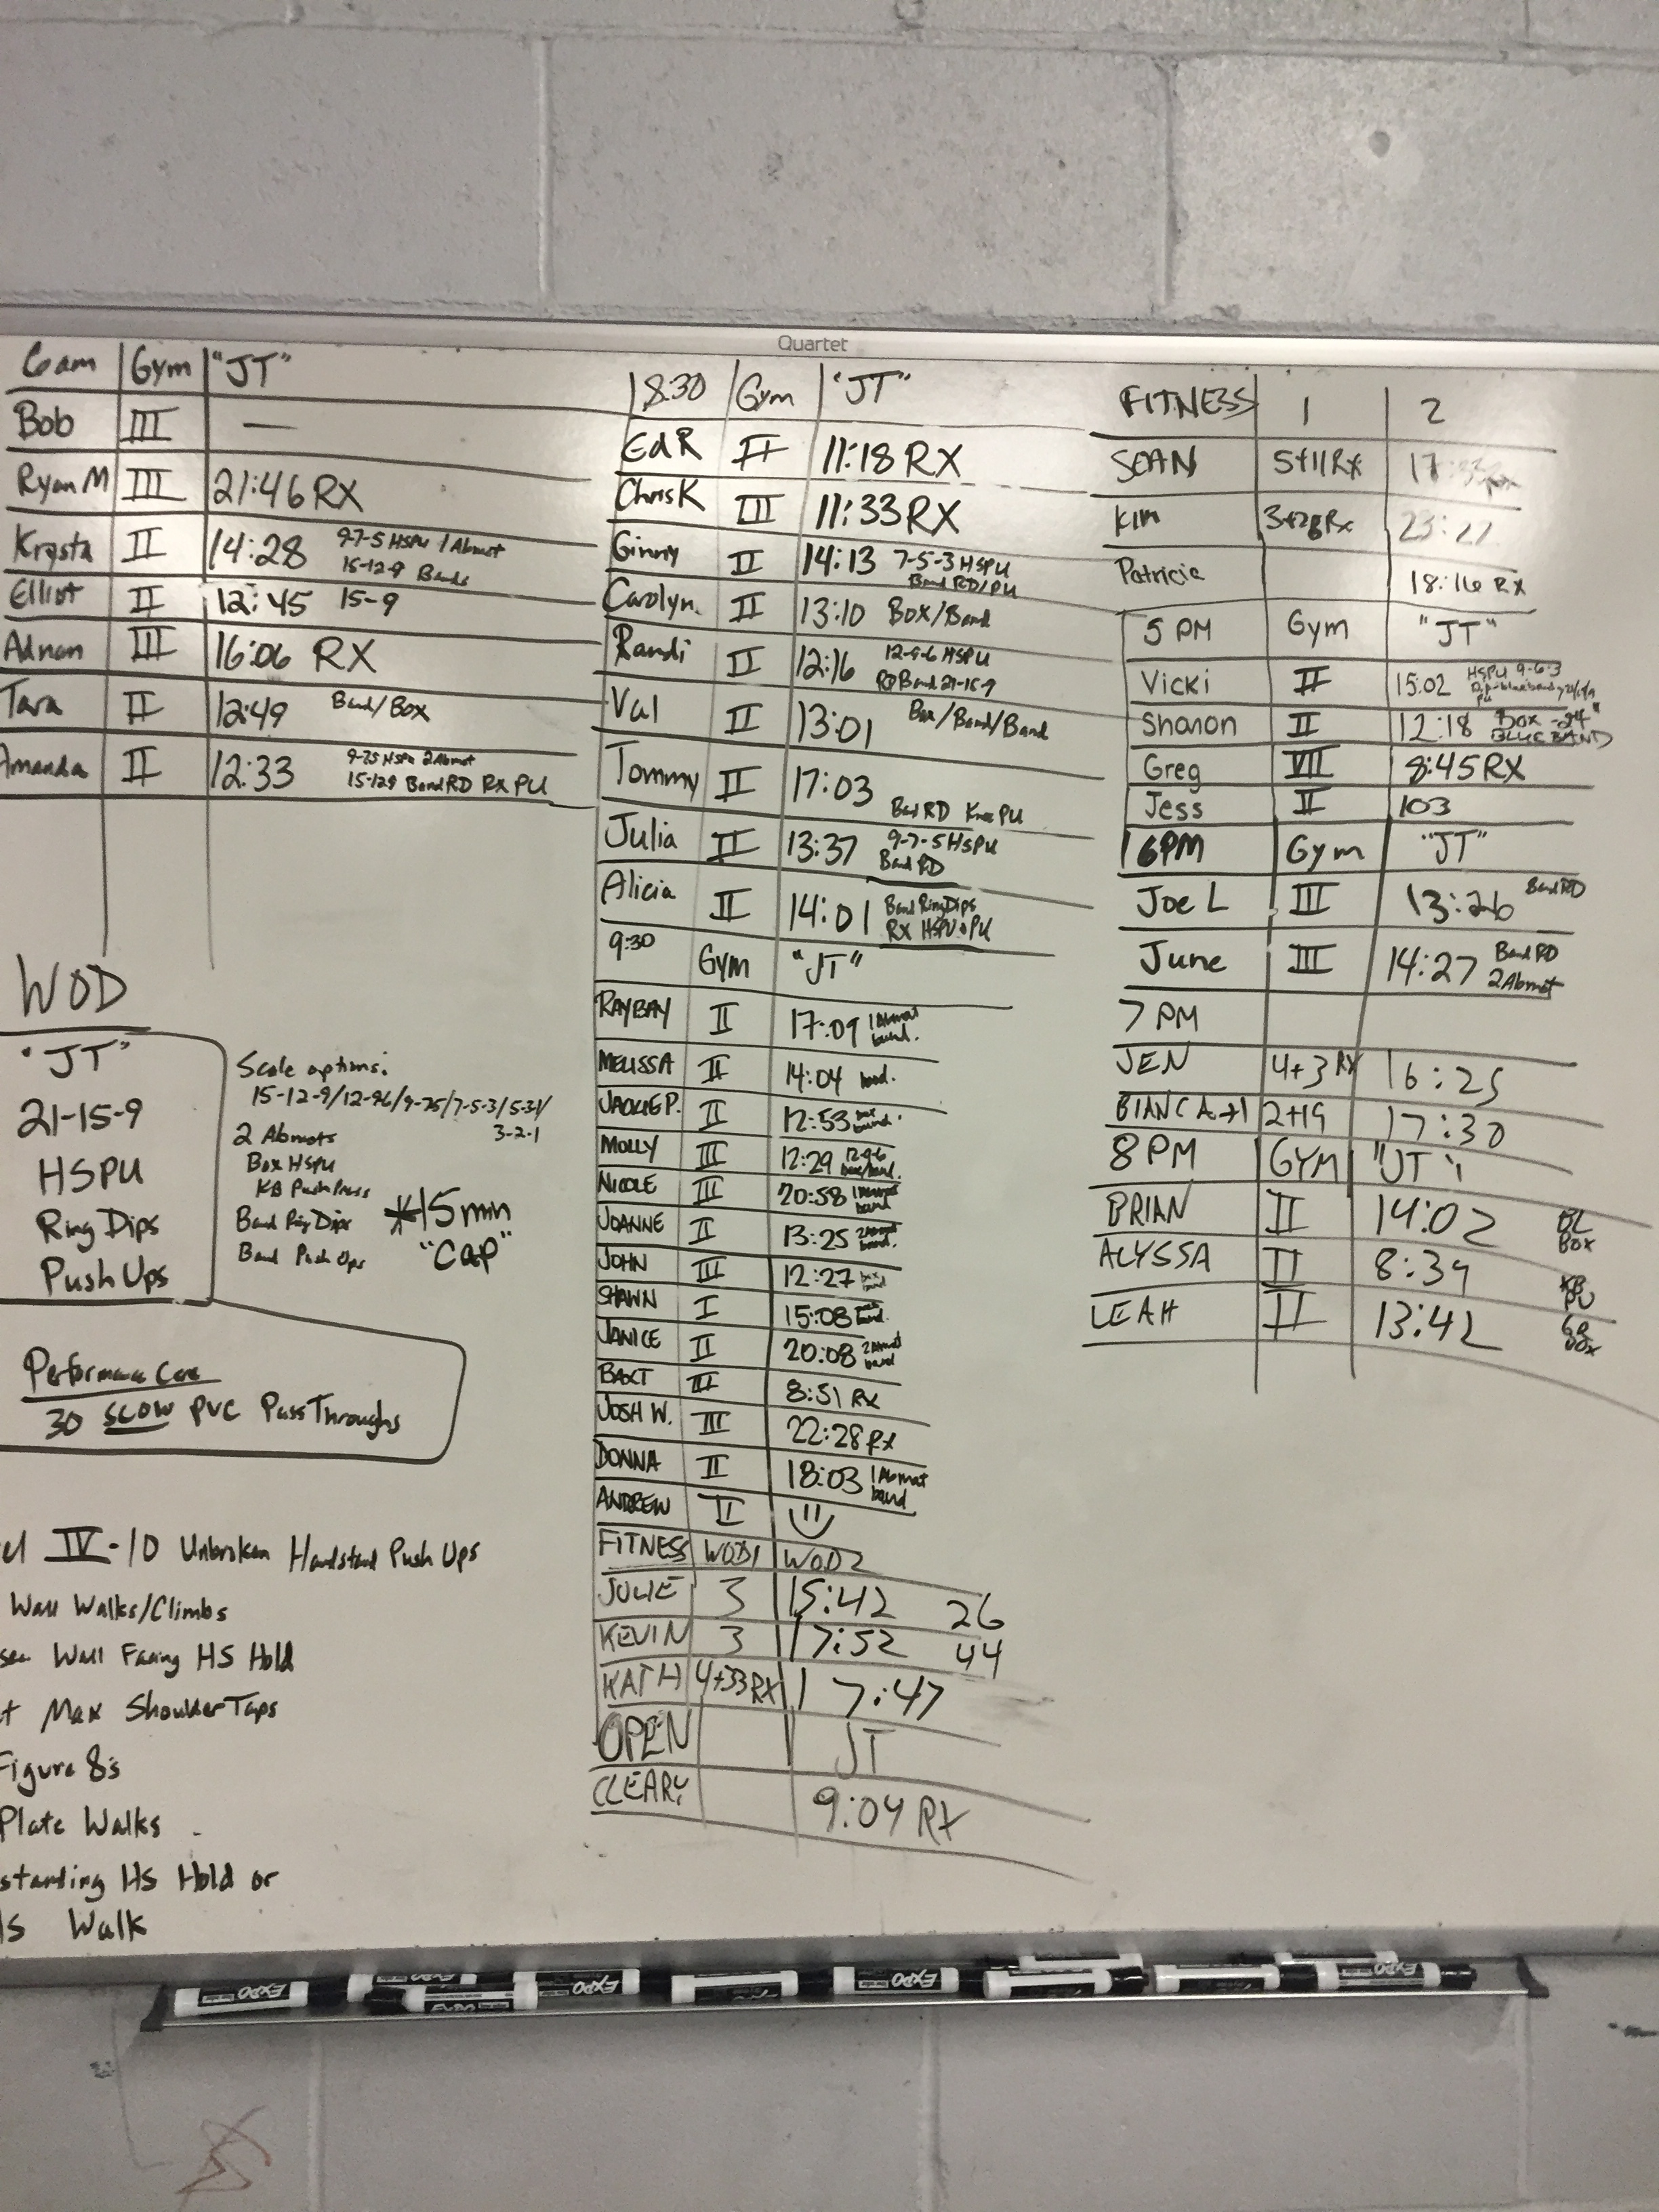 Quartet
6am Gym "JT"
Bob III —
Ryan M III 21:46 RX
Krysta II 14:28 9-7-5 HSPU 1 Abmat
15-12-9 Bands
Elliot II 12:45 15-9
Adnan III 16:06 RX
Tara II 12:49 Band/Box
Amanda II 12:33 9-75 HSPU 2 Abmat
15-129 Band RD RX PU
WOD
"JT"
21-15-9
HSPU
Ring Dips
Push Ups
Scale options:
15-12-9/12-96/9-75/7-5-3/5-3-1/
3-2-1
2 Abmats
Box HSPU
KB Push Press
Band Ring Dips
Band Push Ups
*15 min
"Cap"
Performance Core
30 SLOW PVC Pass Throughs
IV-10 Unbroken Handstand Push Ups
Wall Walks/Climbs
sec Wall Facing HS Hold
Max Shoulder Taps
Figure 8's
Plate Walks
standing HS Hold or
Walk
8:30 Gym "JT"
Ed R II 11:18 RX
Chris K III 11:33 RX
Ginny II 14:13 7-5-3 HSPU
Band RD/PU
Carolyn II 13:10 Box/Band
Randi II 12:16 12-9-6 HSPU
RD Band 21-15-9
Val II 13:01 Box/Band/Band
Tommy II 17:03
Band RD Knee PU
Julia II 13:37 9-7-5 HSPU
Band RD
Alicia II 14:01 Band Ring Dips
RX HSPU + PU
9:30 Gym "JT"
RAYBAY II 17:09 1 Abmat
band.
MELISSA II 14:04 band.
JACKIE P. II 12:53 box
band.
MOLLY III 12:29 12-9-6
box/band.
NICOLE III 20:58 1 Abmat
band
JOANNE II 13:25 2 Abmat
band.
JOHN III 12:27 box
band
SHAWN I 15:08 band.
JANICE II 20:08 2 Abmat
band
BART III 8:51 RX
JOSH W. III 22:28 RX
DONNA II 18:03 1 Abmat
band
ANDREW II
FITNESS WOD1 WOD2
JULIE 3 15:42 26
KEVIN 3 17:52 44
KATH 4+33 RX 17:47
OPEN JT
CLEARY 9:04 RX
FITNESS 1 2
SEAN 5+11 Rx
KIM 23:22
Patricia 18:16 RX
5 PM Gym "JT"
Vicki II 15:02 HSPU 9-6-3
Shanon II 12:18 BOX -24"
BLUE BAND
Greg VII 8:45 RX
Jess II 103
6PM Gym "JT"
Joe L III 13:26 Band RD
June III 14:27 Band RD
2 Abmat
7 PM
JEN 4+3 RX 16:25
BIANCA 2+19 17:30
8 PM GYM "JT"
BRIAN II 14:02 BL
BOX
ALYSSA II 8:39 KB
PU
LEAH II 13:42 GR
BOX
EXPO
EXPO
EXPO
EXPO